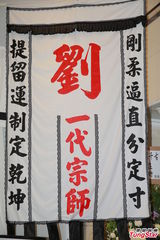 剛柔逼直分定寸
劉
一代宗師
提留運制定乾坤
TungStar